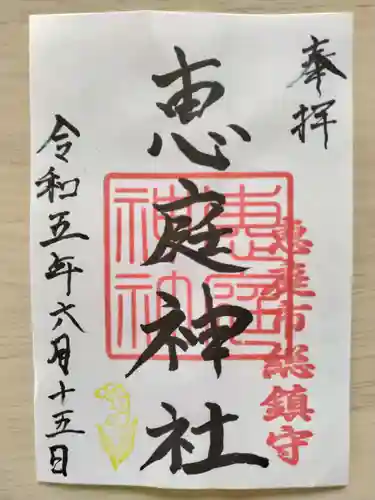 奉拝
恵庭市総鎮守
恵庭神社
令和五年六月十五日